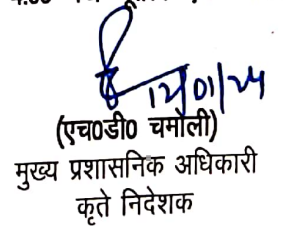 12/01/24
(एच0डी0 चमोली)
मुख्य प्रशासनिक अधिकारी
कृते निदेशक